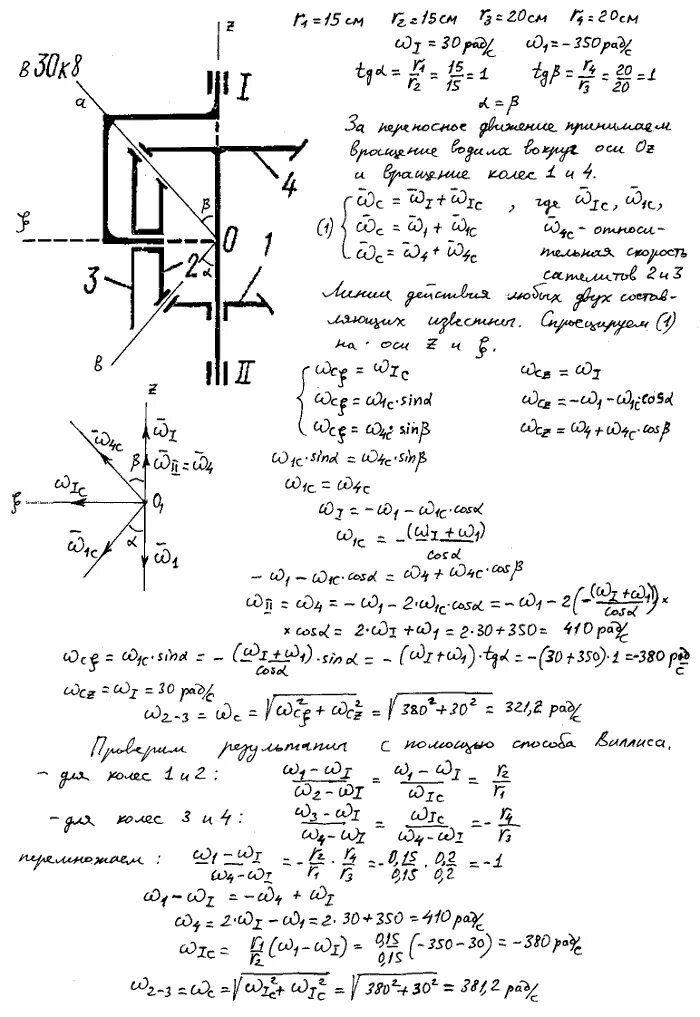 r₁=15см r₂=15см r₃=20см r₄=20см
ω_I = 30 рад/с ω₁ = −350 рад/с
tgα = r₁/r₂ = 15/15 = 1 tgβ = r₄/r₃ = 20/20 = 1
α = β
За переносное движение принимаем
вращение водила вокруг оси Oz
и вращение колес 1 и 4.
(1) { ω̄_c = ω̄_I + ω̄_Ic , где ω̄_Ic, ω̄_1c,
ω̄_c = ω̄₁ + ω̄_1c ω̄_4c - относи-
ω̄_c = ω̄₄ + ω̄_4c тельная скорость
сателитов 2 и 3
Линии действия любых двух состав-
ляющих известны. Спроецируем (1)
на оси z и ξ.
{ ω_cξ = ω_Ic ω_cz = ω_I
ω_cξ = ω_1c·sinα ω_cz = −ω₁−ω_1c·cosα
ω_cξ = ω_4c·sinβ ω_cz = ω₄+ω_4c·cosβ
ω_1c·sinα = ω_4c·sinβ
ω_1c = ω_4c
ω_I = −ω₁ − ω_1c·cosα
ω_1c = −(ω_I + ω₁)/cosα
−ω₁ − ω_1c·cosα = ω₄ + ω_4c·cosβ
ω_II = ω₄ = −ω₁ − 2·ω_1c·cosα = −ω₁ − 2(−(ω_I+ω₁)/cosα)×
×cosα = 2·ω_I + ω₁ = 2·30+350 = 410 рад/с
ω_cξ = ω_1c·sinα = −(ω_I+ω₁)/cosα·sinα = −(ω_I+ω₁)·tgα = −(30+350)·1 = −380 рад/с
ω_cz = ω_I = 30 рад/с
ω₂₋₃ = ω_c = √(ω_cξ² + ω_cz²) = √(380²+30²) = 321,2 рад/с
Проверим результаты с помощью способа Виллиса.
− для колес 1 и 2: (ω₁−ω_I)/(ω₂−ω_I) = (ω₁−ω_I)/ω_Ic = r₂/r₁
− для колес 3 и 4: (ω₃−ω_I)/(ω₄−ω_I) = ω_Ic/(ω₄−ω_I) = −r₄/r₃
перемножаем: (ω₁−ω_I)/(ω₄−ω_I) = −r₂/r₁·r₄/r₃ = −0,15/0,15·0,2/0,2 = −1
ω₁−ω_I = −ω₄ + ω_I
ω₄ = 2·ω_I − ω₁ = 2·30+350 = 410 рад/с
ω_Ic = r₁/r₂(ω₁−ω_I) = 0,15/0,15(−350−30) = −380 рад/с
ω₂₋₃ = ω_c = √(ω_Ic² + ω_Ic²) = √(380²+30²) = 381,2 рад/с
z
В30к8
I
a
4
β
ξ
O
3
2
α
1
в
II
z
ω̄_4c
ω̄_I
β
ω̄_II=ω̄₄
ω̄_Ic
ξ
O₁
ω̄_1c
α
ω̄₁